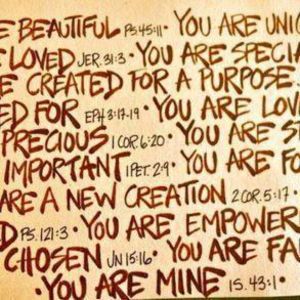 E BEAUTIFUL PS.45:11 · YOU ARE UNIQ
E LOVED JER. 31:3 · YOU ARE SPECIA
E CREATED FOR A PURPOSE
ED FOR EPH 3:17-19 · YOU ARE LOV
PRECIOUS 1 COR. 6:20 · YOU ARE S
IMPORTANT 1 PET. 2:9 · YOU ARE FO
ARE A NEW CREATION 2 COR. 5:17 ·
D PS. 121:3 · YOU ARE EMPOWER
CHOSEN JN 15:16 · YOU ARE FA
· YOU ARE MINE IS. 43:1 ·